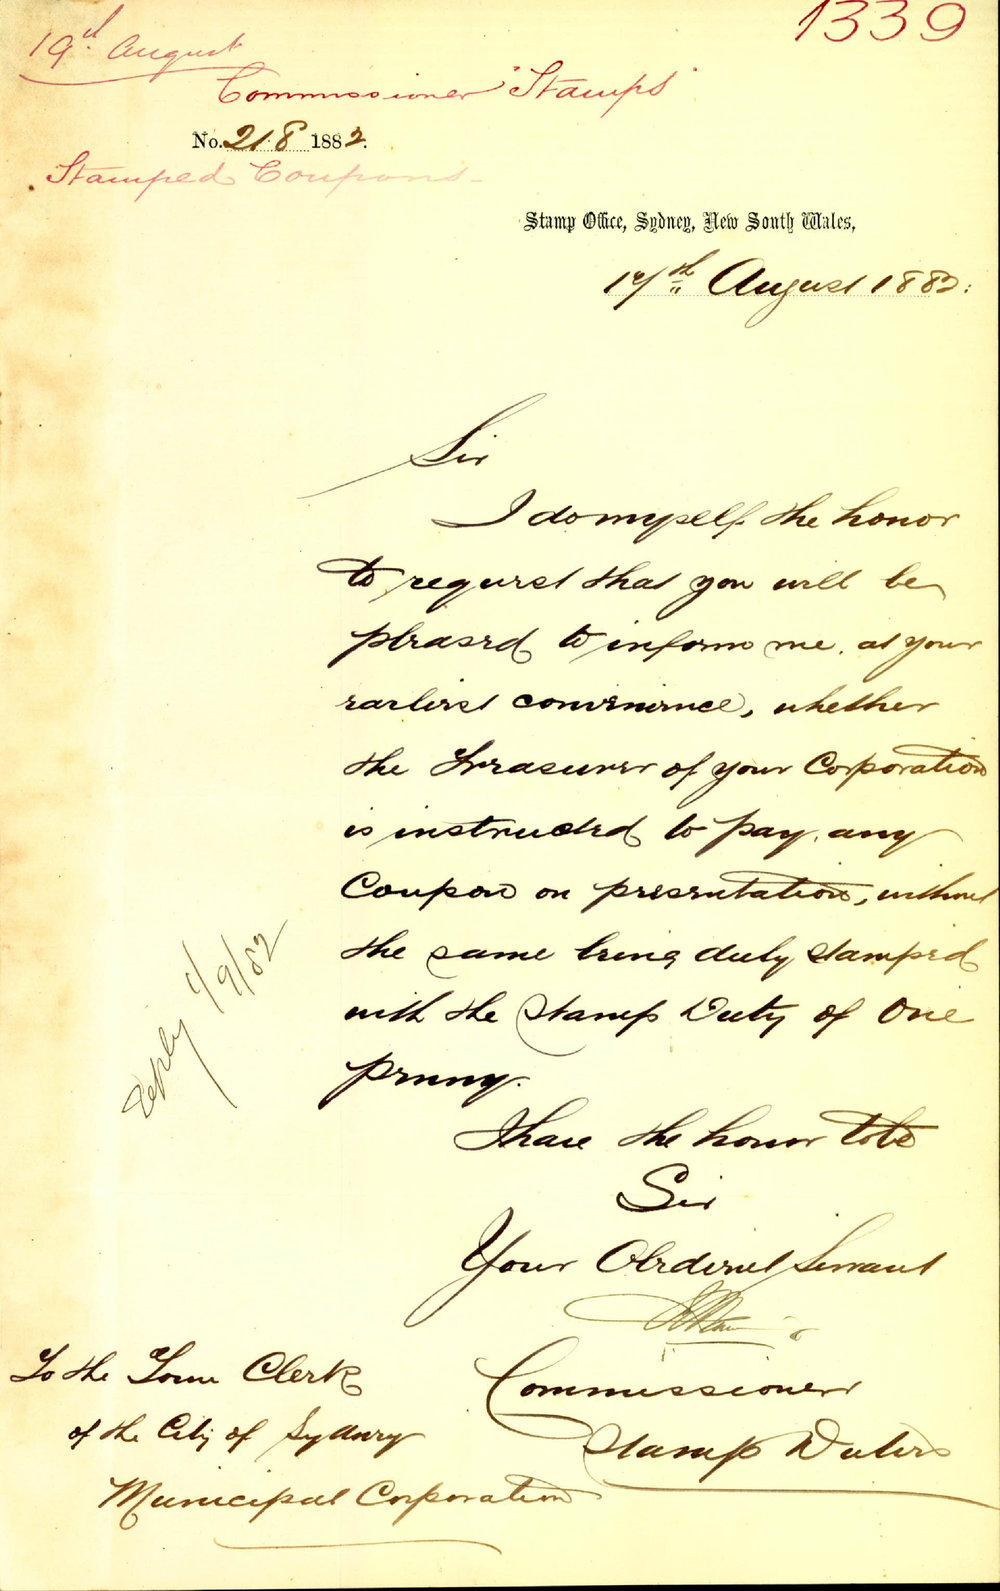 1339
19th August
Commissioner "Stamps"
No. 218 1882.
Stamped Coupons
Stamp Office, Sydney, New South Wales,
17th August 1882:
Sir
I do myself the honor
to request that you will be
pleased to inform me, at your
earliest convenience, whether
the Treasurer of your Corporation
is instructed to pay, any
Coupon on presentation, without
the same being duly stamped
with the Stamp Duty of One
penny.
I have the honor to be
Sir
Your Obedient Servant
Commissioner
Stamp Duties
To the Town Clerk
of the City of Sydney
Municipal Corporation
reply 1/9/82